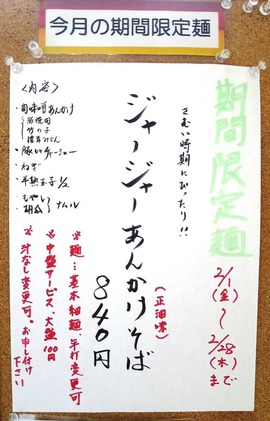 今月の期間限定麺
期間限定麺
2/1(金)～2/28(木)まで
さむい時期にぴったり!!
ジャージャーあんかけそば
(正油味)
840円
<内容>
肉味噌あんかけ
豚挽肉
竹の子
豚バラチャーシュー
ねぎ
半熟玉子1/2
もやし
胡瓜
ナムル
※麺…基本細麺、平打変更可
※中盛サービス、大盛100円
※汁なし変更可。お申し付け下さい